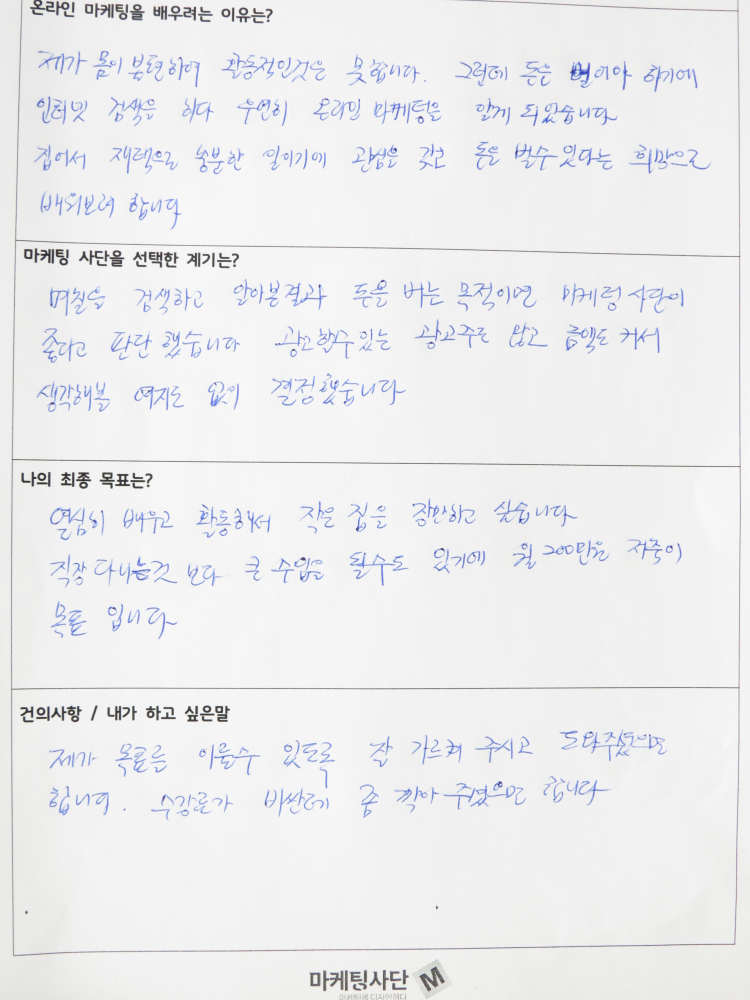 온라인 마케팅을 배우려는 이유는?
제가 몸이 불편하여 활동적인것은 못합니다. 그런데 돈은 벌어야 하기에
인터넷 검색을 하다 우연히 온라인 마케팅을 알게 되었습니다
집에서 재택으로 충분한 일이기에 관심을 갖고 돈을 벌수 있다는 희망으로
배워보려 합니다
마케팅 사단을 선택한 계기는?
며칠을 검색하고 알아본결과 돈을 버는 목적이면 마케팅사단이
좋다고 판단했습니다 광고할수있는 광고주도 많고 금액도 커서
생각해볼 여지도 없이 결정했습니다
나의 최종 목표는?
열심히 배우고 활동해서 작은 집을 장만하고 싶습니다
직장다니는것 보다 큰 수입을 될수도 있기에 월 200만원 저축이
목표 입니다
건의사항 / 내가 하고 싶은말
제가 목표를 이룰수 있도록 잘 가르켜 주시고 도와주셨으면
합니다. 수강료가 비싼데 좀 깍아 주셨으면 합니다
마케팅사단 M
마케팅을 디자인하다